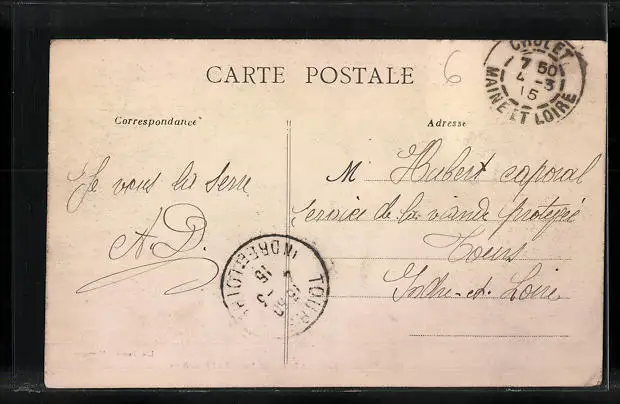 CARTE POSTALE
6
CHOLET
7 50
4 -3
15
MAINE ET LOIRE
Correspondance
Adresse
Je vous la serre
A.D.
M. Hubert caporal
Service de la viande protégée
Tours
Indre-et-Loire
TOURS
INDRE-ET-LOIRE
15